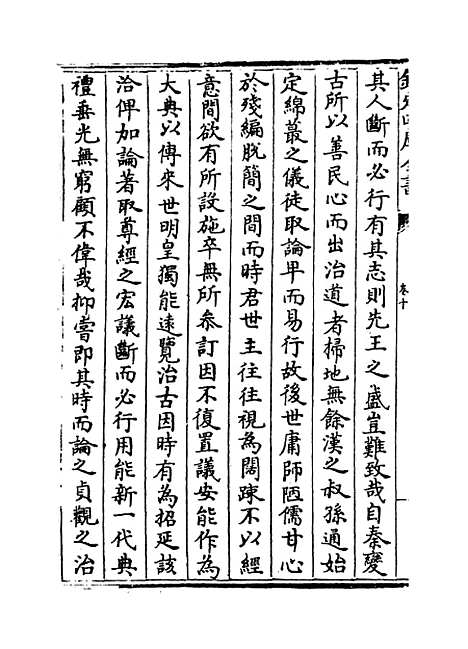 欽定四庫全書
卷十
其人斷而必行有其志則先王之盛豈難致哉自秦變
古所以善民心而出治道者掃地無餘漢之叔孫通始
定綿蕞之儀徒取論卑而易行故後世庸師陋儒甘心
於殘編脫簡之間而時君世主往往視為闊踈不以經
意間欲有所設施卒無所叅訂因不復置議安能作為
大典以傳來世明皇獨能遠覽治古因時有為招延該
洽俾加論著取尊經之宏議斷而必行用能新一代典
禮垂光無窮顧不偉哉抑嘗即其時而論之貞觀之治